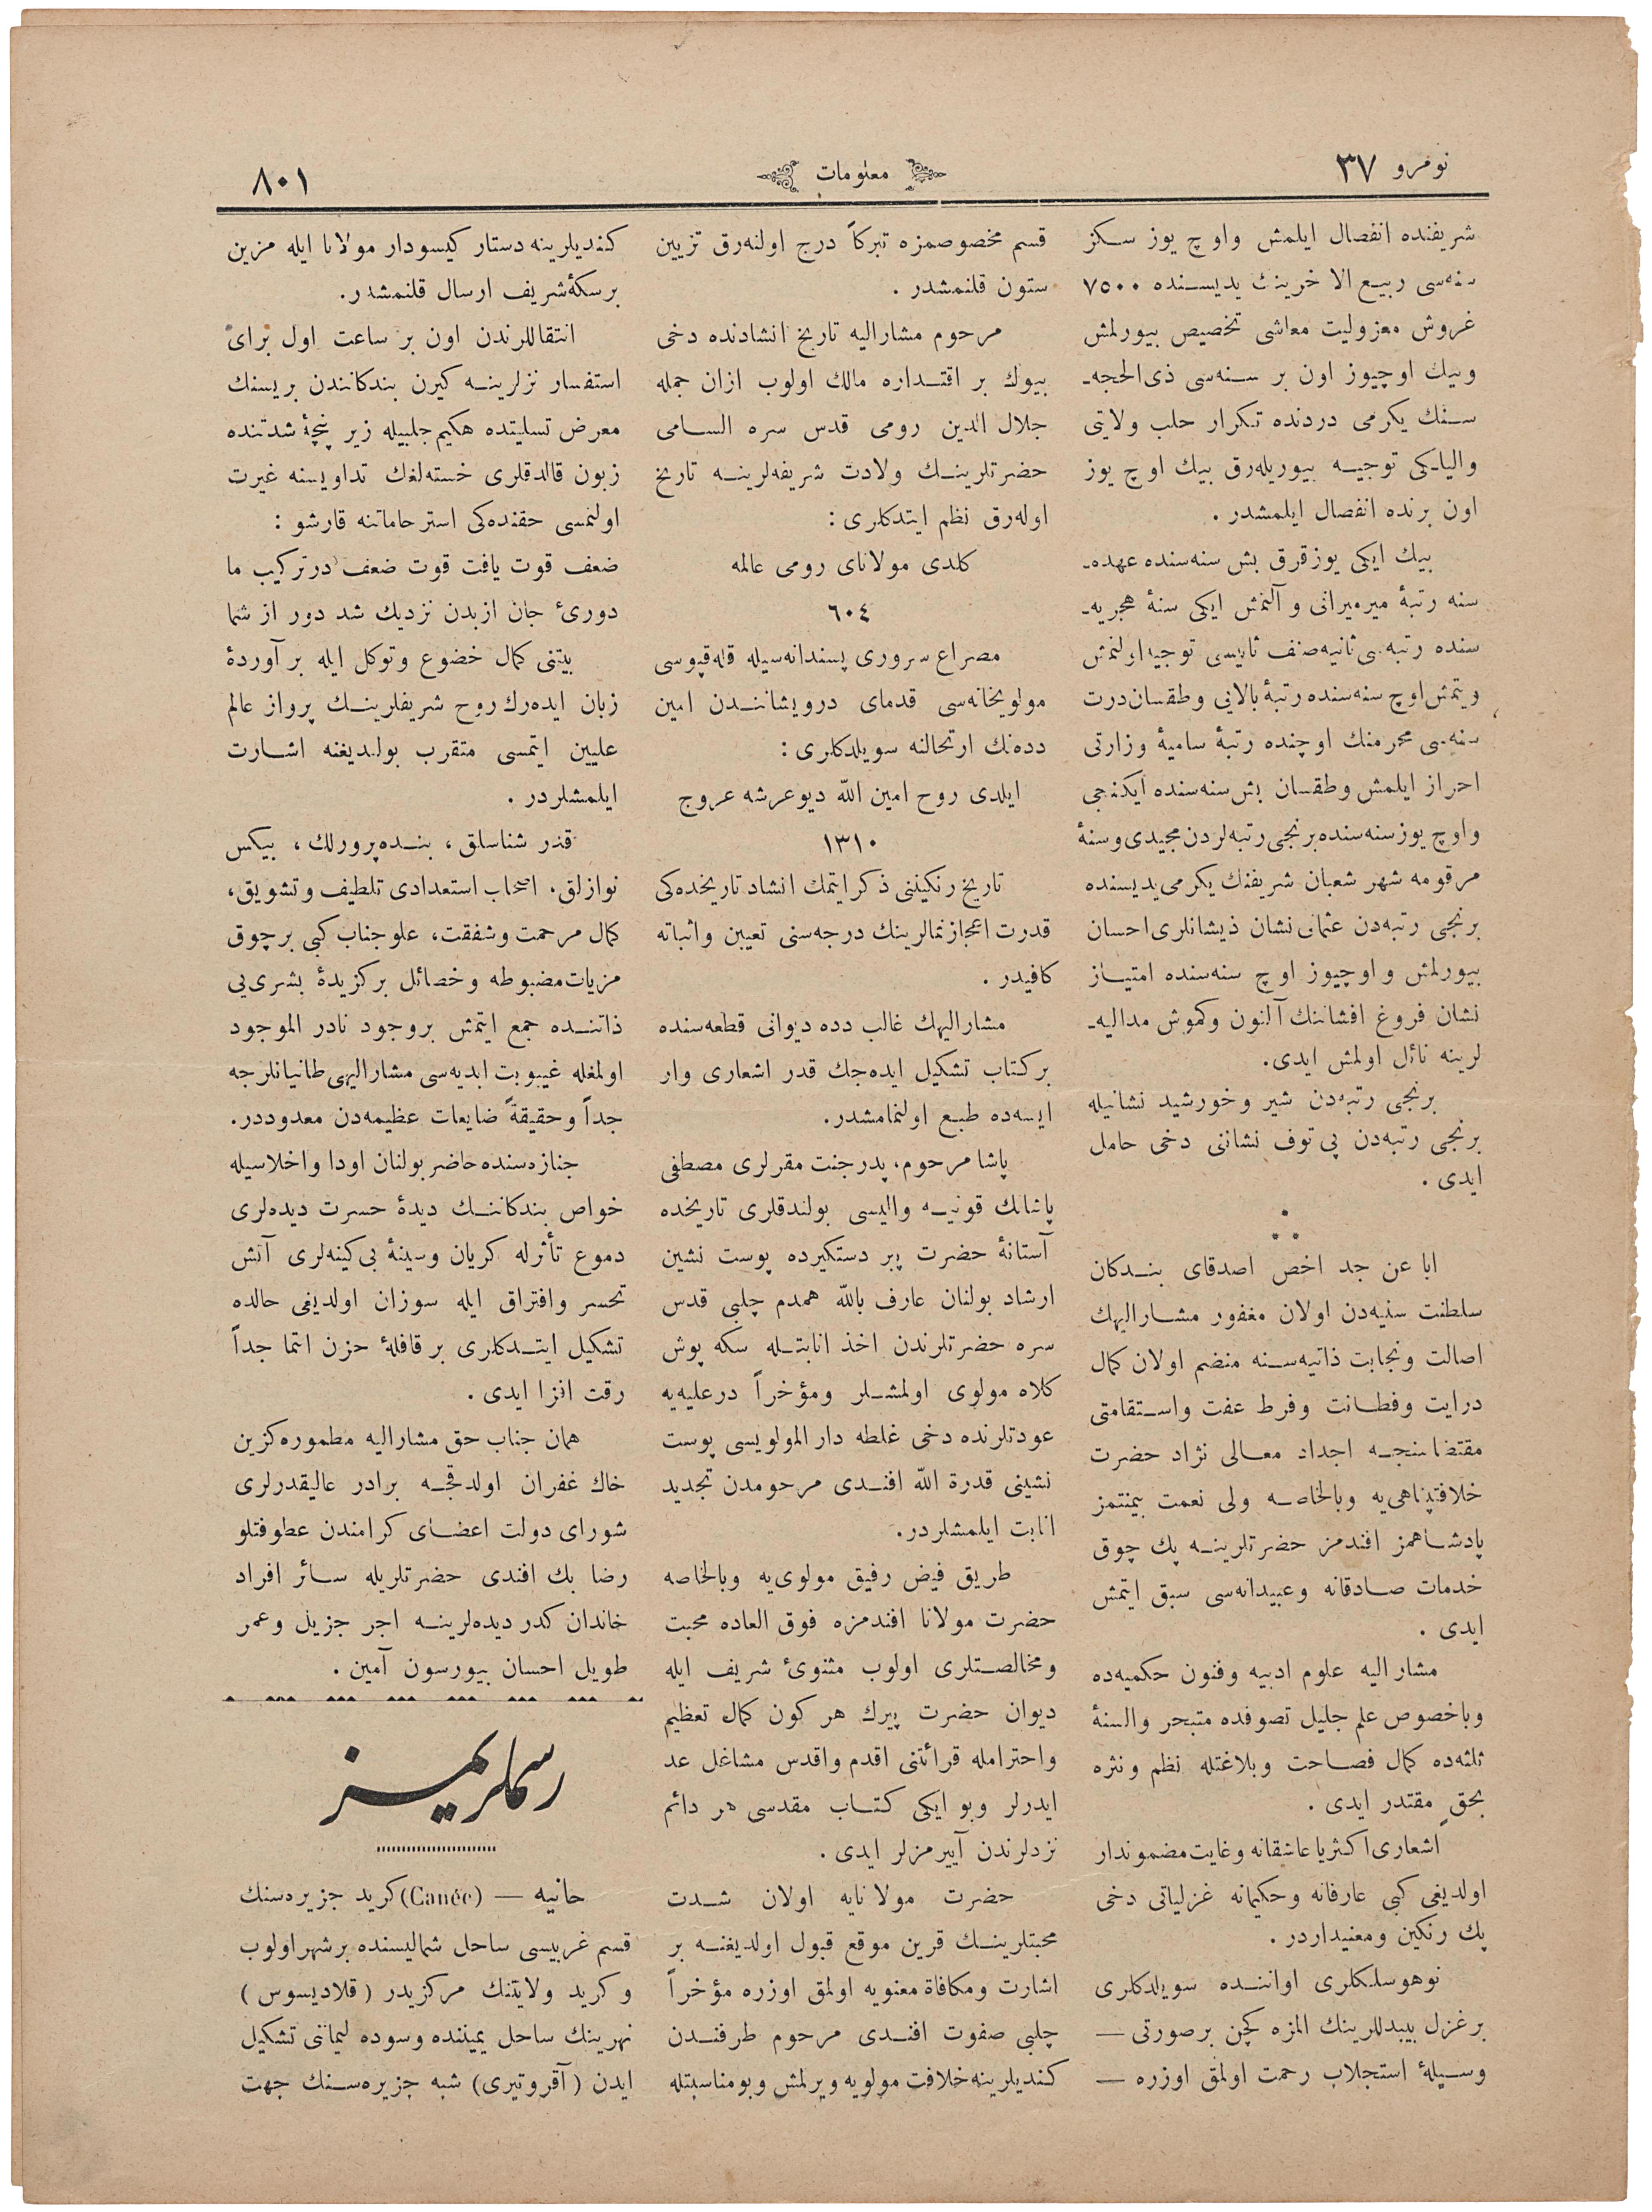 نومرو ٣٧
معلومات
٨٠١
شريفنده انفصال ايلمش واوچ يوز سكز
سنه‌سى ربيع الاخرينك يديسنده ٧٥٠٠
غروش معزوليت معاشى تخصيص بيورلمش
وبيك اوچيوز اون بر سنه‌سى ذى الحجه‌ـ
سنك يكرمى دردنده تكرار حلب ولايتى
واليلكى توجيه بيوريله‌رق بيك اوچ يوز
اون برنده انفصال ايلمشدر .
بيك ايكى يوز قرق بش سنه‌سنده عهده‌ـ
سنه رتبهٔ ميرميرانى و آلتمش ايكى سنهٔ هجريه‌ـ
سنده رتبه‌ٔ ثانيه صنف ثانيسى توجيه اولنمش
ويتمش اوچ سنه‌سنده رتبهٔ بالايى وطقسان درت
سنه‌سى محرمنك اوچنده رتبهٔ ساميهٔ وزارتى
احراز ايلمش وطقسان بش سنه‌سنده ايكنجى
واوچ يوز سنه‌سنده برنجى رتبه‌لردن مجيدى وسنهٔ
مرقومه شهر شعبان شريفنك يكرمى يديسنده
برنجى رتبه‌دن عثمانى نشان ذيشانلرى احسان
بيورلمش و اوچيوز اوچ سنه‌سنده امتياز
نشان فروغ افشاننك آلتون وكموش مداليه‌ـ
لرينه نائل اولمش ايدى.
برنجى رتبه‌دن شير وخورشيد نشانيله
برنجى رتبه‌دن پى توف نشاننى دخى حامل
ايدى .
ابا عن جد اخص اصدقاى بندكان
سلطنت سنيه‌دن اولان مغفور مشاراليهك
اصالت ونجابت ذاتيه‌سنه منضم اولان كمال
درايت وفطانت وفرط عفت واستقامتى
مقتضاسنجه اجداد معالى نژاد حضرت
خلافتپناهى‌يه وبالخاصه ولى نعمت بيمنتمز
پادشاهمز افندمز حضرتلرينه پك چوق
خدمات صادقانه وعبيدانه‌سى سبق ايتمش
ايدى .
مشار اليه علوم ادبيه وفنون حكميه‌ده
وباخصوص علم جليل تصوفده متبحر والسنهٔ
ثلثه‌ده كمال فصاحت وبلاغتله نظم ونثره
بحقٍ مقتدر ايدى .
اشعارى اكثريا عاشقانه وغايت مضموندار
اولديغى كبى عارفانه وحكيمانه غزلياتى دخى
پك رنكين ومعنيداردر .
نوهوسلكلرى اواننده سويلدكلرى
بر غزل بيبدللرينك المزه كچن برصورتى —
وسيلهٔ استجلاب رحمت اولمق اوزره —
قسم مخصوصمزه تبركاً درج اولنه‌رق تزيين
ستون قلنمشدر .
مرحوم مشاراليه تاريخ انشادنده دخى
بيوك بر اقتداره مالك اولوب ازان جمله
جلال الدين رومى قدس سره السامى
حضرتلرينك ولادت شريفه‌لرينه تاريخ
اوله‌رق نظم ايتدكلرى :
كلدى مولاناى رومى عالمه
٦٠٤
مصراع سرورى پسندانه‌سيله قپوسى
مولويخانه‌سى قدماى درويشانندن امين
دده‌نك ارتحالنه سويلدكلرى :
ايلدى روح امين اللّه ديو عرشه عروج
١٣١٠
تاريخ رنكيننى ذكر ايتمك انشاد تاريخده‌كى
قدرت اعجاز نمالرينك درجه‌سنى تعيين واثباته
كافيدر .
مشاراليهك غالب دده ديوانى قطعه‌سنده
بر كتاب تشكيل ايده‌جك قدر اشعارى وار
ايسه‌ده طبع اولنمامشدر.
پاشا مرحوم، پدر جنت مقرلرى مصطفى
پاشانك قونيه واليسى بولندقلرى تاريخده
آستانهٔ حضرت پير دستكيرده پوست نشين
ارشاد بولنان عارف باللّه همدم چلبى قدس
سره حضرتلرندن اخذ انابتله سكه پوش
كلاه مولوى اولمشلر ومؤخراً درعليه‌يه
عودتلرنده دخى غلطه دار المولويسى پوست
نشينى قدرة اللّه افندى مرحومدن تجديد
انابت ايلمشلردر.
طريق فيض رفيق مولوى‌يه وبالخاصه
حضرت مولانا افندمزه فوق العاده محبت
ومخالصتلرى اولوب مثنوىٔ شريف ايله
ديوان حضرت پيرك هر كون كمال تعظيم
واحترامله قرائتنى اقدم واقدس مشاغل عد
ايدرلر وبو ايكى كتاب مقدسى هر دائم
نزدلرندن آييرمزلر ايدى .
حضرت مولانايه اولان شدت
محبتلرينك قرين موقع قبول اولديغنه بر
اشارت ومكافاة معنويه اولمق اوزره مؤخراً
چلبى صفوت افندى مرحوم طرفندن
كنديلرينه خلافت مولويه ويرلمش وبومناسبتله
كنديلرينه دستار كيسودار مولانا ايله مزين
برسكهٔ شريف ارسال قلنمشدر.
انتقاللرندن اون بر ساعت اول براى
استفسار نزلرينه كيرن بندكانندن بريسنك
معرض تسليتده هكيم جلبيله زير پنچهٔ شدتنده
زبون قالدقلرى خسته‌لغك تداويسنه غيرت
اولنمسى حقنده‌كى استرحاماتنه قارشو :
ضعف قوت يافت قوت ضعف در تركيب ما
دورىٔ جان از بدن نزديك شد دور از شما
بيتنى كمال خضوع وتوكل ايله بر آوردهٔ
زبان ايده‌رك روح شريفلرينك پرواز عالم
عليين ايتمسى متقرب بولديغنه اشارت
ايلمشلردر .
قدر شناسلق، بنده‌پرورلك، بيكس
نوازلق، اصحاب استعدادى تلطيف وتشويق،
كمال مرحمت وشفقت، علو جناب كبى بر چوق
مزيات مضبوطه وخصائل بركزيدهٔ بشرى‌يى
ذاتنده جمع ايتمش بر وجود نادر الموجود
اولمغله غيبوبت ابديه‌سى مشاراليهى طانيانلرجه
جداً وحقيقةً ضايعات عظيمه‌دن معدوددر.
جنازه‌سنده حاضر بولنان اودا واخلاسيله
خواص بندكاننك ديدهٔ حسرت ديده‌لرى
دموع تأثرله كريان وسينهٔ بى كينه‌لرى آتش
تحسر وافتراق ايله سوزان اولديغى حالده
تشكيل ايتدكلرى بر قافلهٔ حزن انتما جداً
رقت افزا ايدى .
همان جناب حق مشاراليه مطموره كزين
خاك غفران اولدقجه برادر عاليقدرلرى
شوراى دولت اعضاى كرامندن عطوفتلو
رضا بك افندى حضرتلريله سائر افراد
خاندان كدر ديده‌لرينه اجر جزيل وعمر
طويل احسان بيورسون آمين .
رسملريمز
حانيه — (Canée) كريد جزيره‌سنك
قسم غربيسى ساحل شماليسنده بر شهر اولوب
وكريد ولايتنك مركزيدر (قلاديسوس)
نهرينك ساحل يميننده وسوده ليماننى تشكيل
ايدن (آقروتيرى) شبه جزيره‌سنك جهت